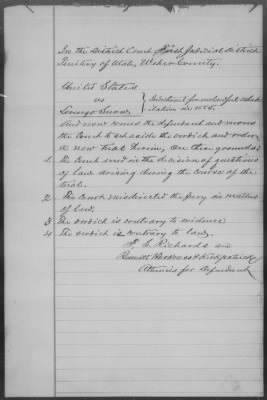 In the District Court First Judicial District
Territory of Utah, Weber County.
United States
vs
Lorenzo Snow
Indictment for unlawful cohab-
itation in 1885.
And now comes the defendant and moves
the Court to set aside the verdict and order
a new trial herein, on the grounds:
1. The Court erred in the decision of questions
of law arising during the course of the
trial.
2. The Court misdirected the jury in matters
of law.
3 The verdict is contrary to evidence
4 The verdict is contrary to law.
F. S. Richards and
Bennett Harkness & Kirkpatrick
Attorneys for Defendant